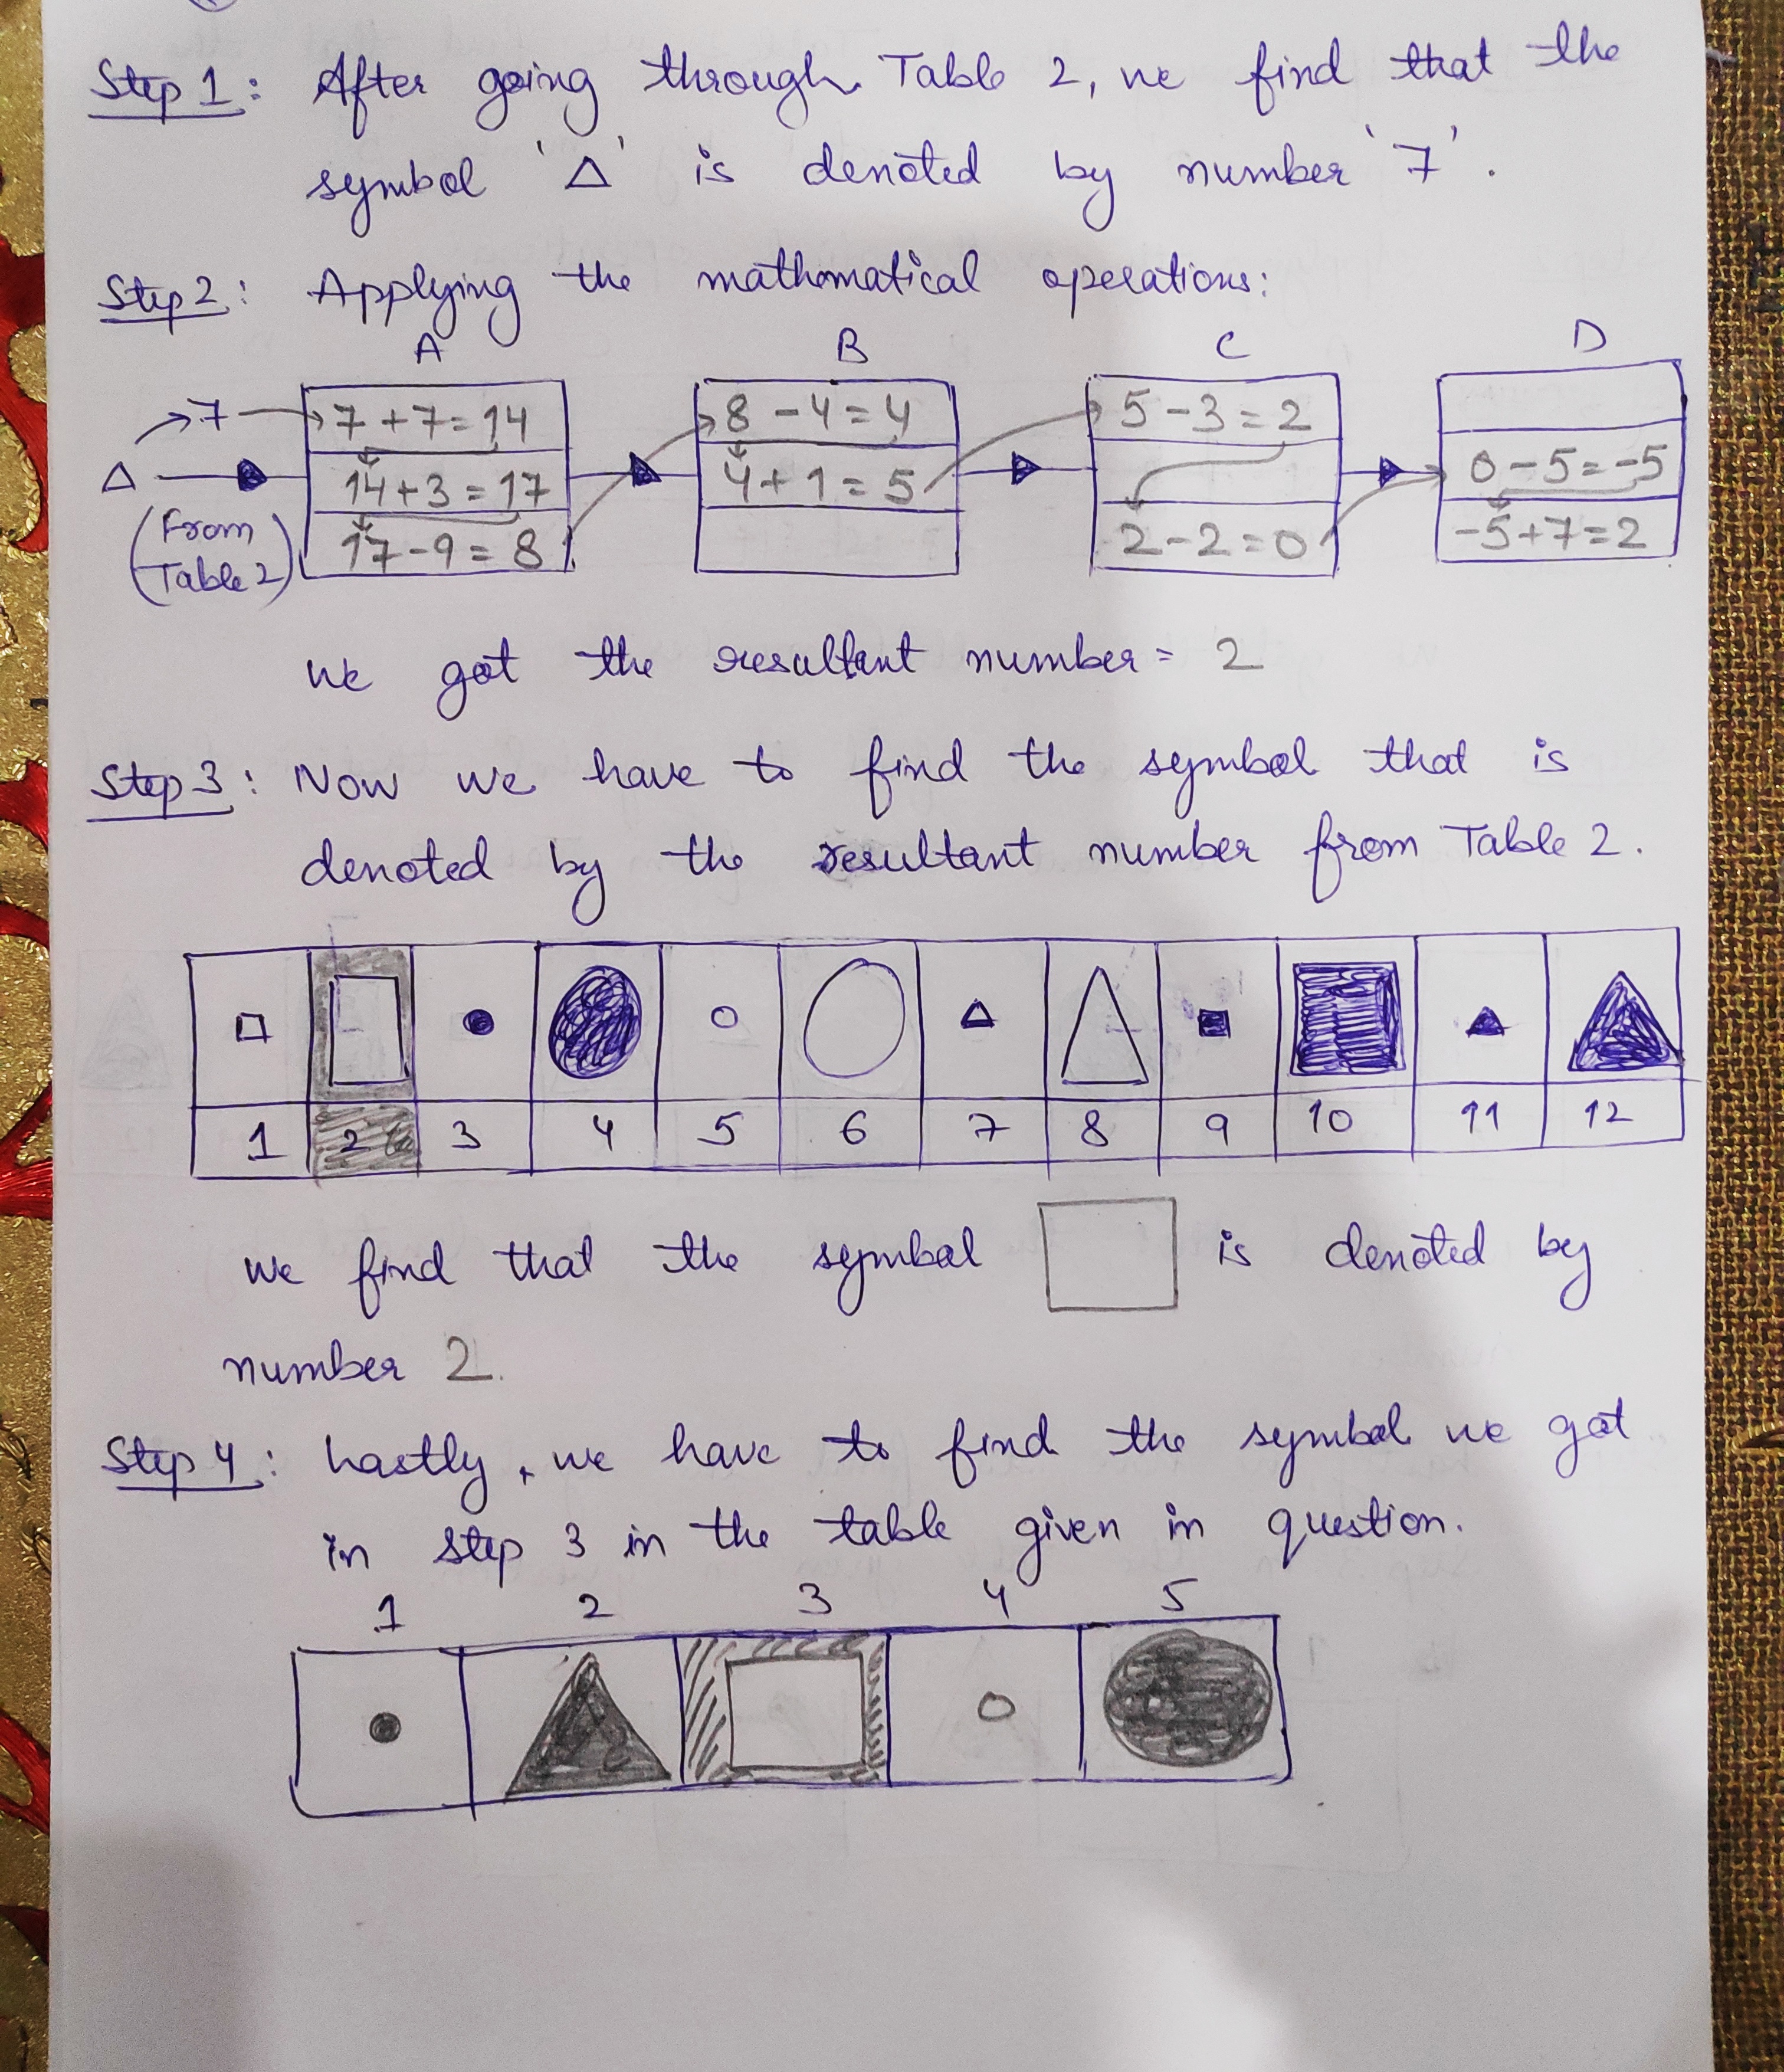 Step 1: After going through Table 2, we find that the
symbol '△' is denoted by number '7'.
Step 2: Applying the mathematical operations:
A B C D
7 7+7=14 8-4=4 5-3=2
△ 14+3=17 4+1=5 0-5=-5
(From Table 2) 17-9=8 2-2=0 -5+7=2
we got the resultant number = 2
Step 3: Now we have to find the symbol that is
denoted by the resultant number from Table 2.
1 2 3 4 5 6 7 8 9 10 11 12
we find that the symbol □ is denoted by
number 2.
Step 4: Lastly, we have to find the symbol we got
in step 3 in the table given in question.
1 2 3 4 5